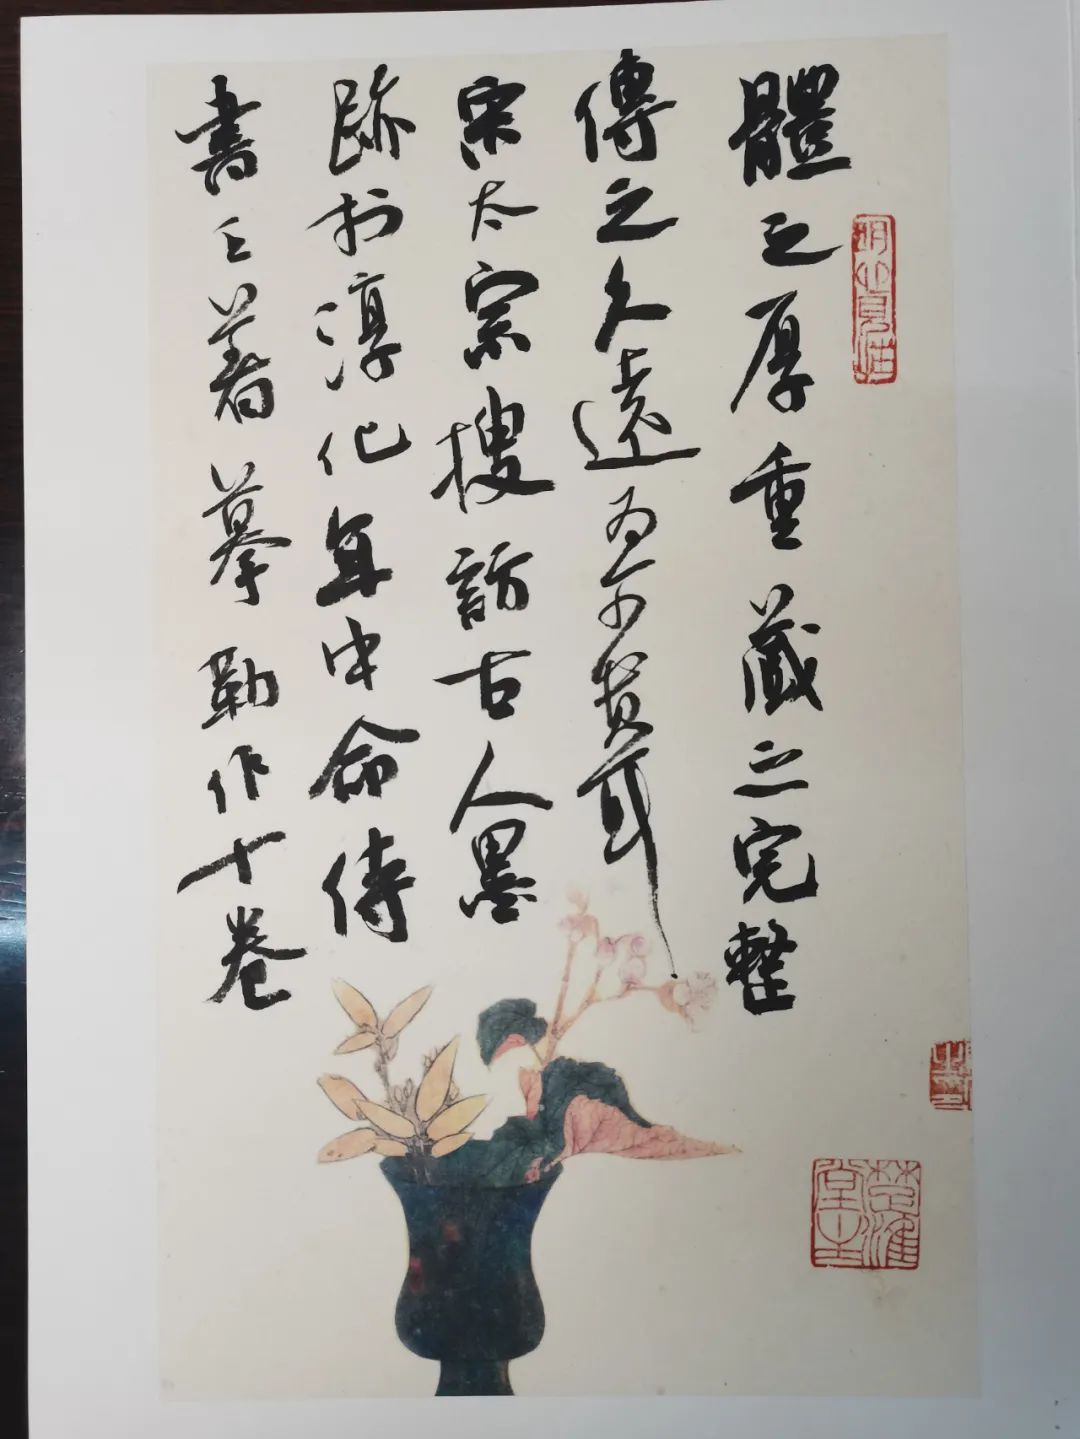 體之厚重藏之完整
傳之久遠為可貴耳
宋太宗搜訪古人墨
跡於淳化年中命侍
書王著摹勒作十卷
明心見性